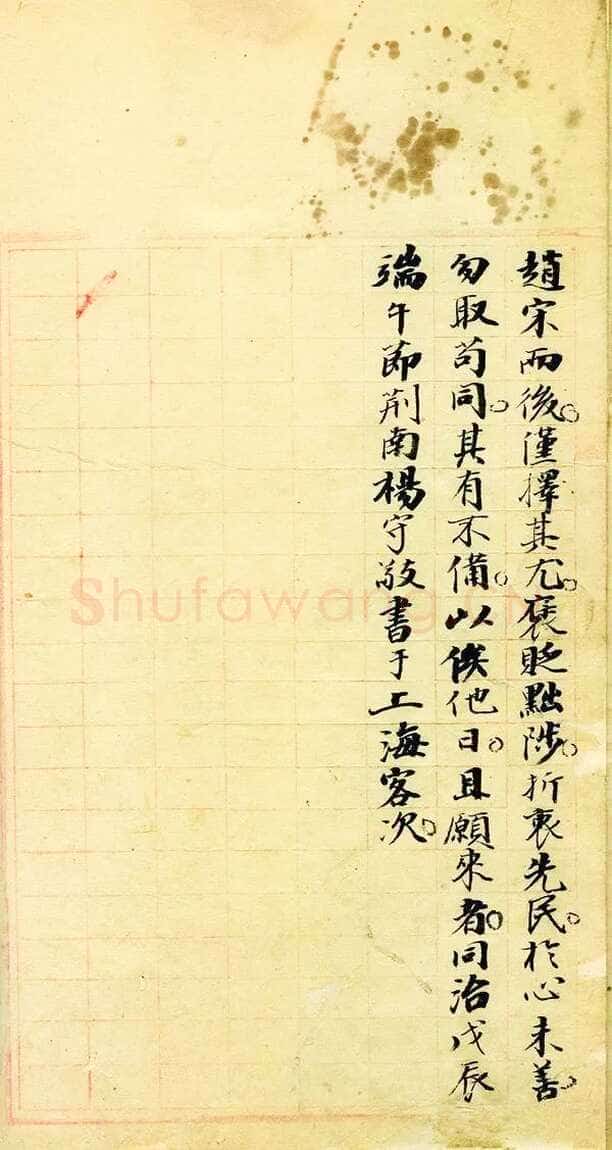 趙宋而後。僅擇其尤。褒貶黜陟。折衷先民。於心未善。
勿取苟同。其有不備。以俟他日。且願來者。同治戊辰
端午節荆南楊守敬書于上海客次。
Shufawang